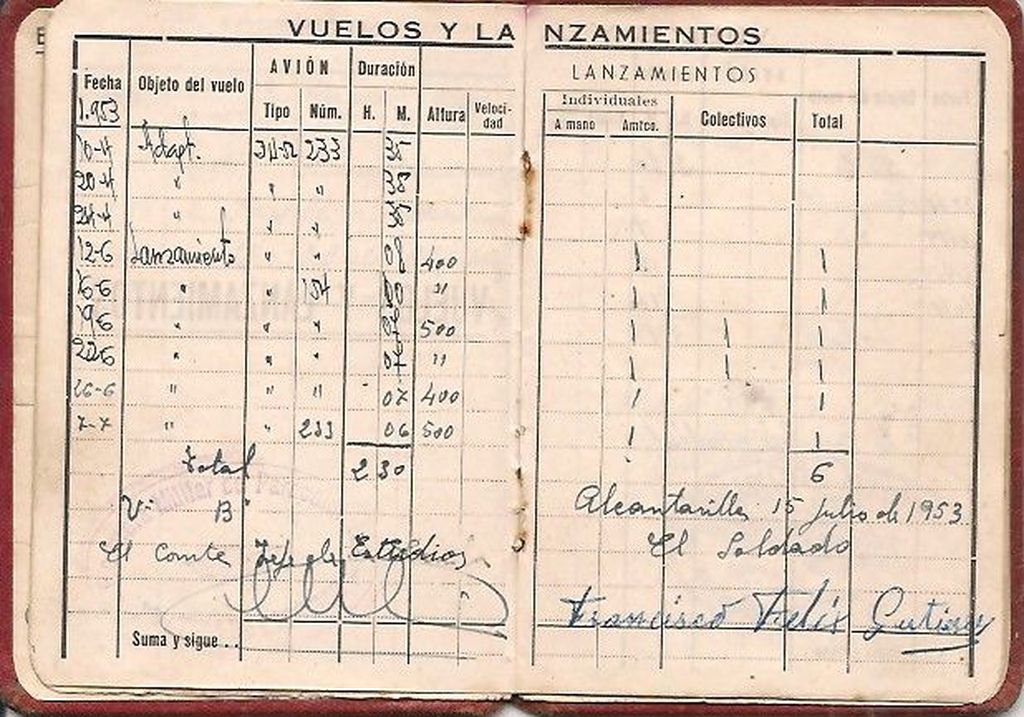 VUELOS Y LANZAMIENTOS
Fecha Objeto del vuelo AVIÓN Duración LANZAMIENTOS
Tipo Núm. H. M. Altura Veloci-dad Individuales Colectivos Total
A mano Amtco.
1.953
10-4 Adapt. 233
20-4 " " "
24-4 " " "
12-6 Lanzamiento " " 08 400 1 1
16-6 " " 154 " 1 1
19-6 " " " 500 1 1 1
22-6 " " " " 1 1 1
26-6 " " " 07 400 1 1
7-7 " " 233 06 500 1 1
Total 2 30 6
Vº Bº Alcantarilla 15 Julio de 1953
El Comte Jefe de Estudios El Soldado
Francisco Felix
Suma y sigue...